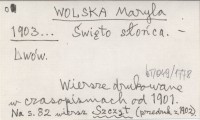 WOLSKA Maryla
1903... Święto słońca. -
Lwów.
Wiersze drukowane
w czasopismach od 1901.
Na s. 82 wiersz Szczyt (przedruk z 1902)